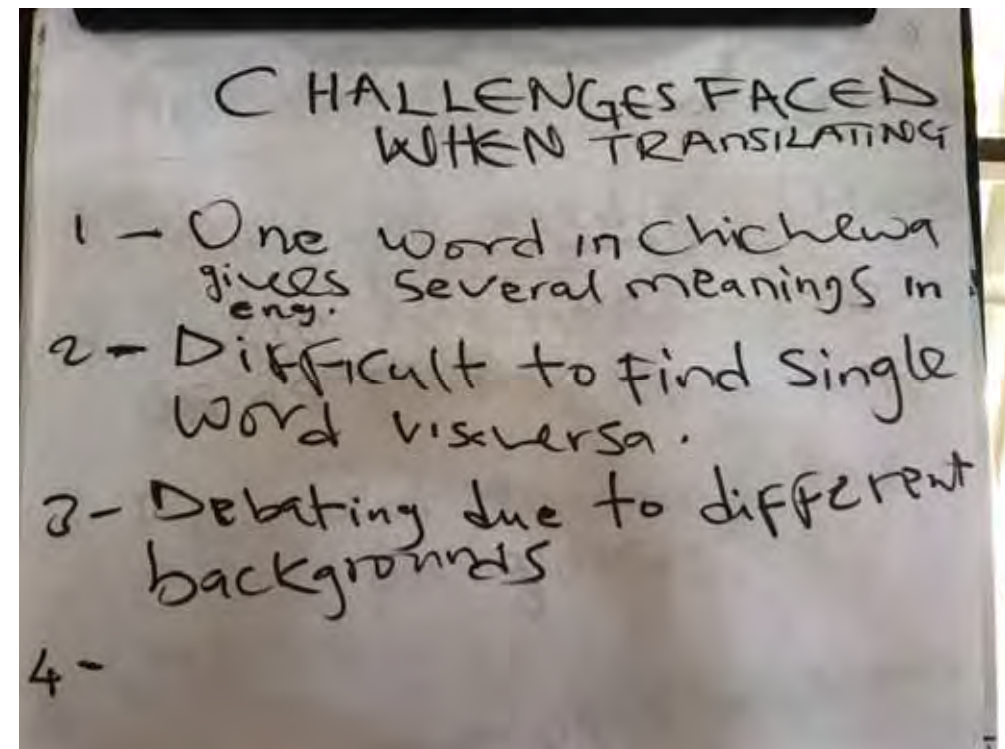 CHALLENGES FACED
WHEN TRANSILATING
1 - One word in Chichewa
gives several meanings in
eng.
2 - Difficult to find single
word viseversa.
3 - Debating due to different
backgrounds
4 -